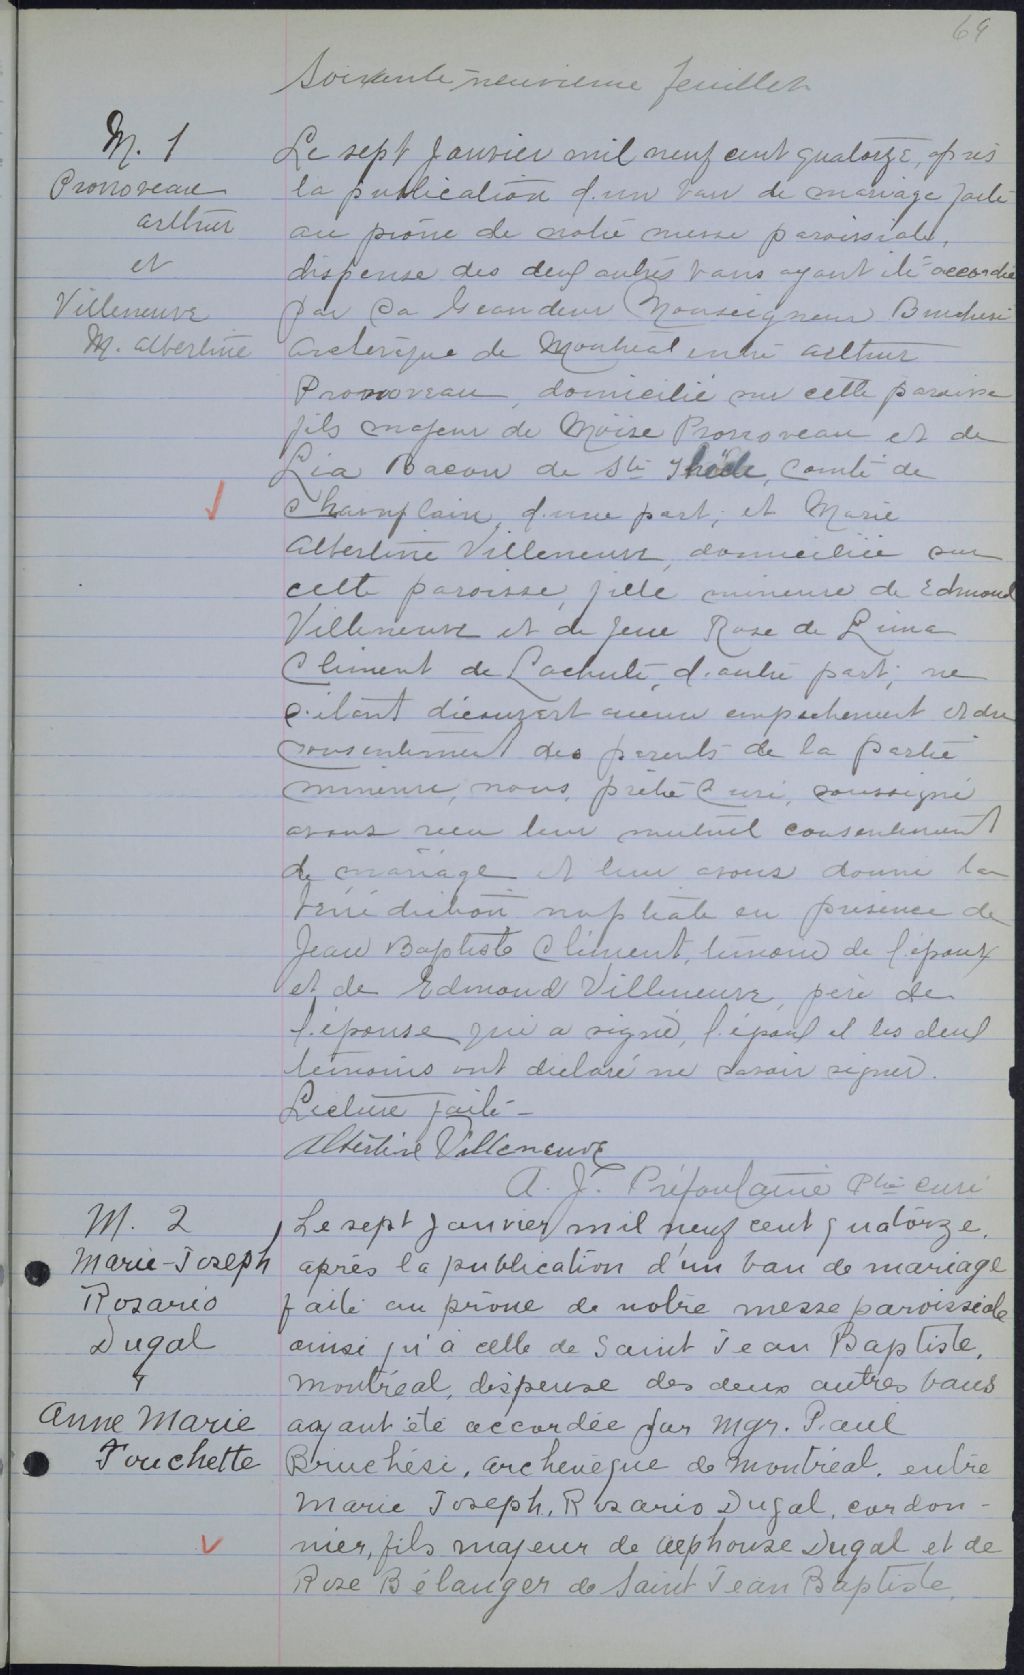 69
Soixante-neuvième feuillet
M. 1
Pronoveau
Arthur
et
Villeneuve
M. Albertine
Le sept Janvier mil neuf cent quatorze, après
la publication d'un ban de mariage faite
au prône de notre messe paroissiale,
dispense des deux autres bans ayant été accordée
par Sa Grandeur Monseigneur Bruchési
Archevêque de Montréal entre Arthur
Pronoveau, domicilié sur cette paroisse
fils majeur de Moïse Pronoveau et de
Lia Bacon de Ste Thècle, Comté de
Champlain, d'une part; et Marie
Albertine Villeneuve, domiciliée sur
cette paroisse, fille mineure de Edmond
Villeneuve et de feue Rose de Lima
Clément de Lachute, d'autre part; ne
s'étant découvert aucun empêchement et du
consentement des parents de la partie
mineure, nous, prêtre Curé, soussigné
avons reçu leur mutuel consentement
de mariage et leur avons donné la
bénédiction nuptiale en présence de
Jean Baptiste Clément, témoin de l'époux
et de Edmond Villeneuve, père de
l'épouse qui a signé, l'époux et les deux
témoins ont déclaré ne savoir signer.
Lecture faite -
Albertine Villeneuve
A. J. Préfontaine Ptre curé
M. 2
Marie-Joseph
Rosario
Dugal
&
Anne Marie
Touchette
Le sept Janvier mil neuf cent quatorze,
après la publication d'un ban de mariage
faite au prône de notre messe paroissiale
ainsi qu'à celle de Saint Jean Baptiste,
Montréal, dispense des deux autres bans
ayant été accordée par Mgr. Paul
Bruchési, archevêque de Montréal, entre
Marie Joseph, Rosario Dugal, cordon-
nier, fils majeur de Alphonse Dugal et de
Rose Bélanger de Saint Jean Baptiste,